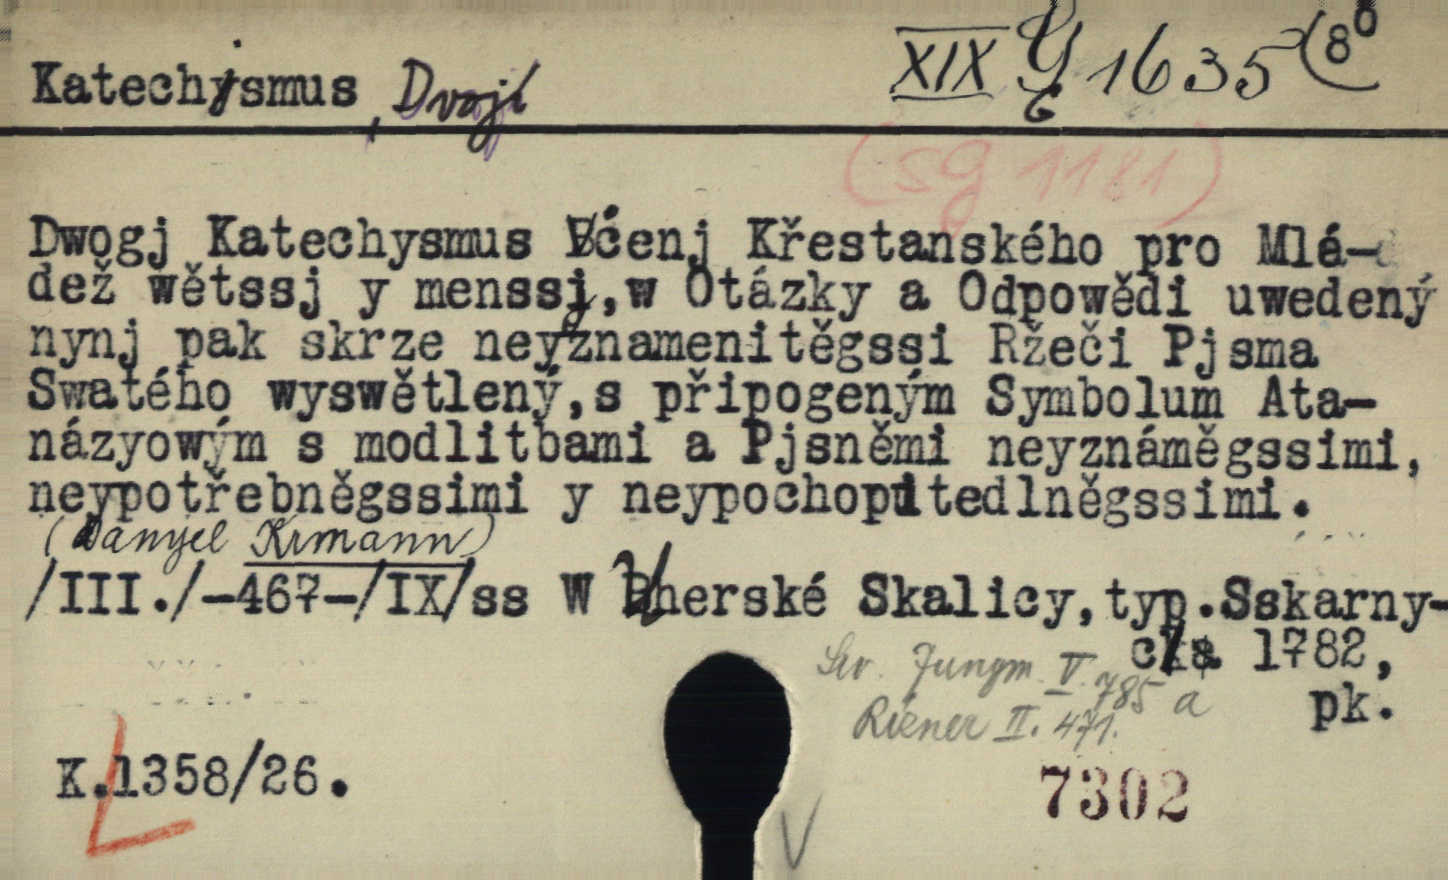 XIX G 1635 (8°
Katechismus, Dvojí
(Sg 1181)
Dwogj Katechysmus Včenj Křestanského pro Mlá-
dež wětssj y menssj,w Otázky a Odpowědi uwedený
nynj pak skrze neyznamenitěgssi Ržeči Pjsma
Swatého wyswětlený,s připogeným Symbolum Ata-
názyowým s modlitbami a Pjsněmi neyznáměgssimi,
neypotřebněgssimi y neypochopitedlněgssimi.
(Danyel Krmann)
/III./-467-/IX/ss W Uherské Skalicy,typ.Sskarny-
1782,
Jungm. V. 785 a
pk.
II. 471.
K.1358/26.
7302